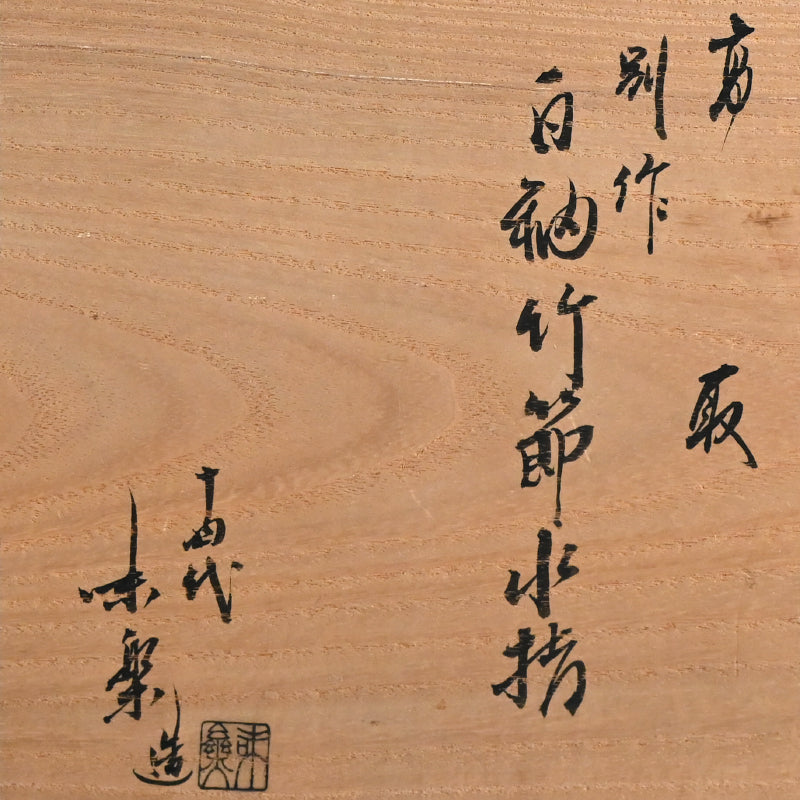 高取
別作
白釉竹節水指
十四代
味楽造